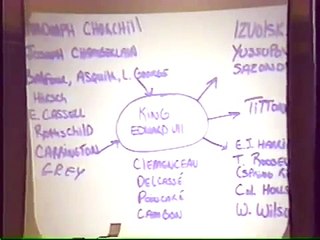 RANDOLPH CHURCHILL
JOSEPH CHAMBERLAIN
BALFOUR, ASQUITH, L. GEORGE
HIRSCH
E. CASSELL
ROTHSCHILD
CARRINGTON
GREY
KING
EDWARD VII
CLEMENCEAU
DELCASSÉ
POINCARÉ
CAMBON
IZVOLSK
YUSSUPOV
SAZONO
TITTON
E.J. HARRI
T. ROOSEV
(SPRING RI
COL HOUS
W. WILSO